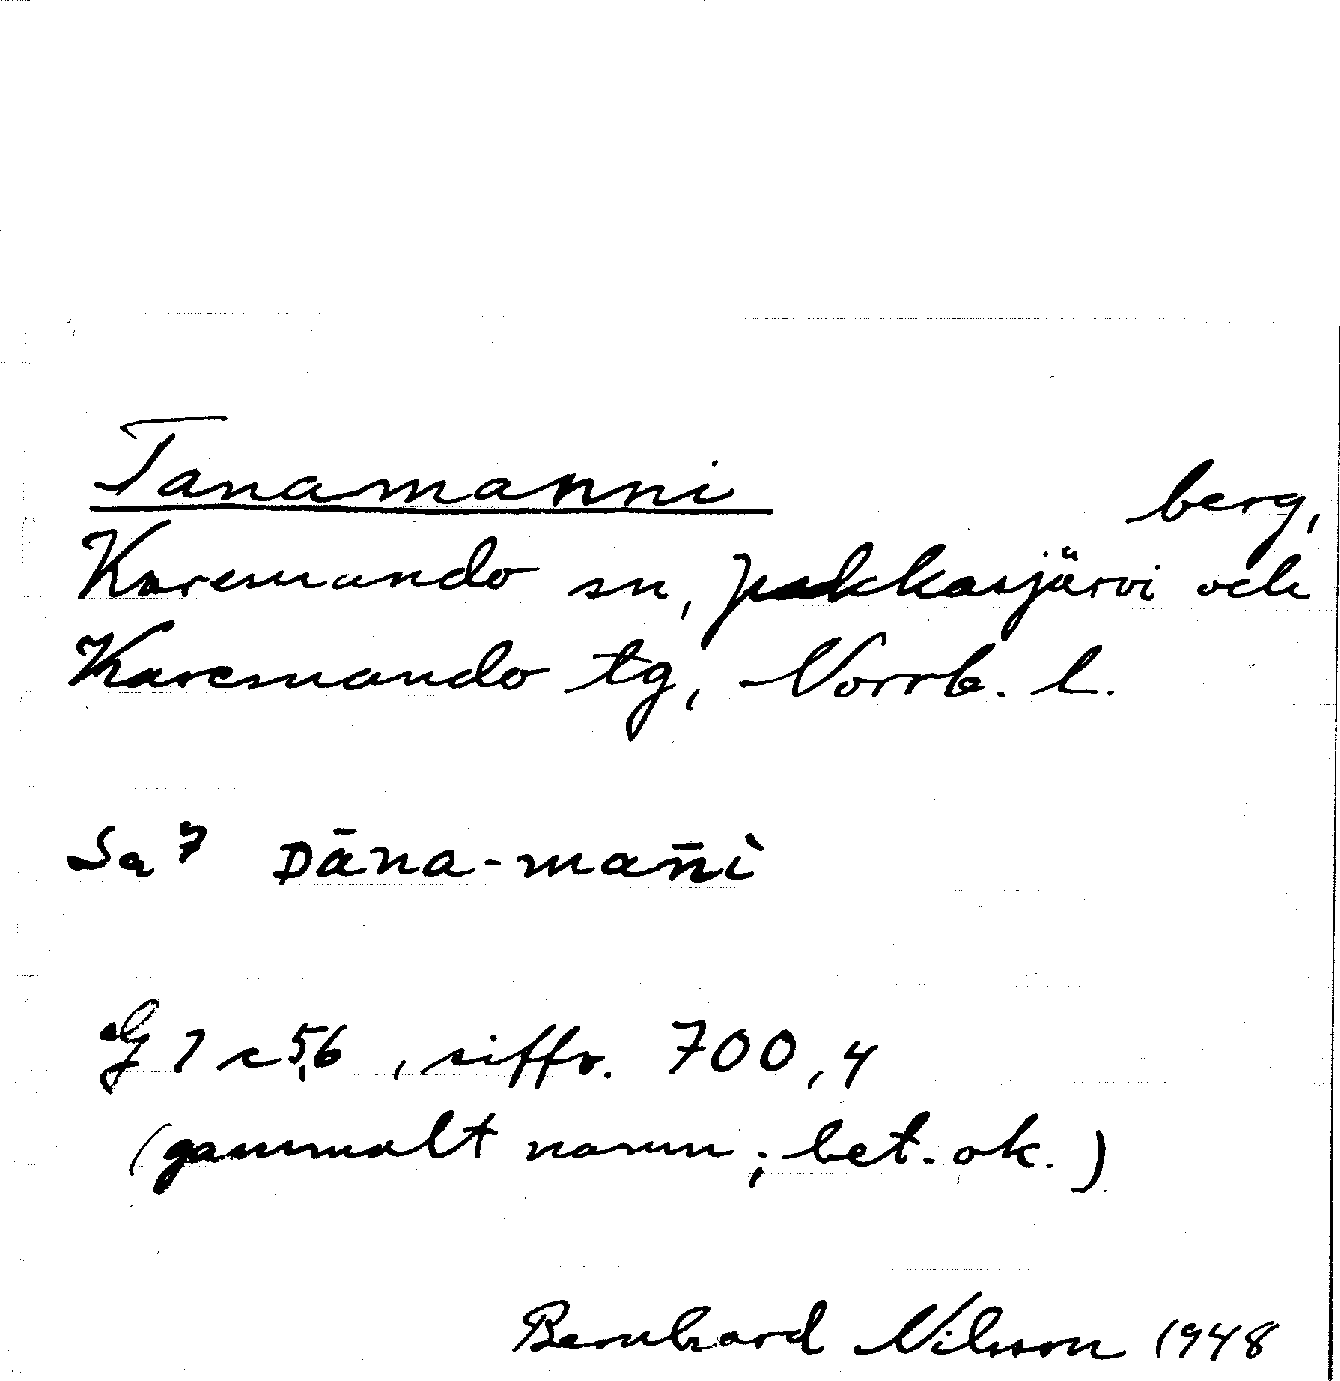 Tanamanni berg,
Karemando sn, Jukkasjärvi och
Karemando tg, Norrb. l.
Sa 7 Dāna-mān̄i
G 7 c 5,6, siffr. 700,4
(gammalt namn; bet. ok.)
Bernhard Nilsson 1948